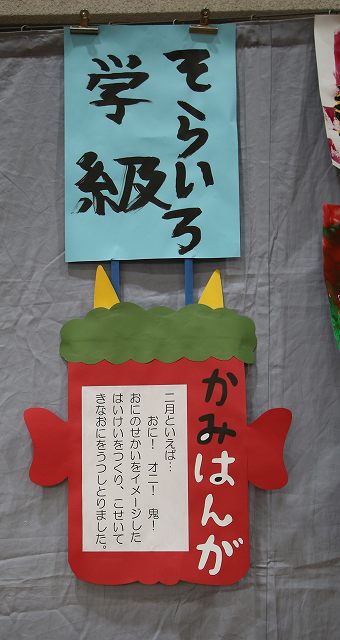 そらいろ
学級
かみはんが
二月といえば…
おに！　オニ！　鬼！
おにのせかいをイメージした
はいけいをつくり、こせいて
きなおにをうつしとりました。